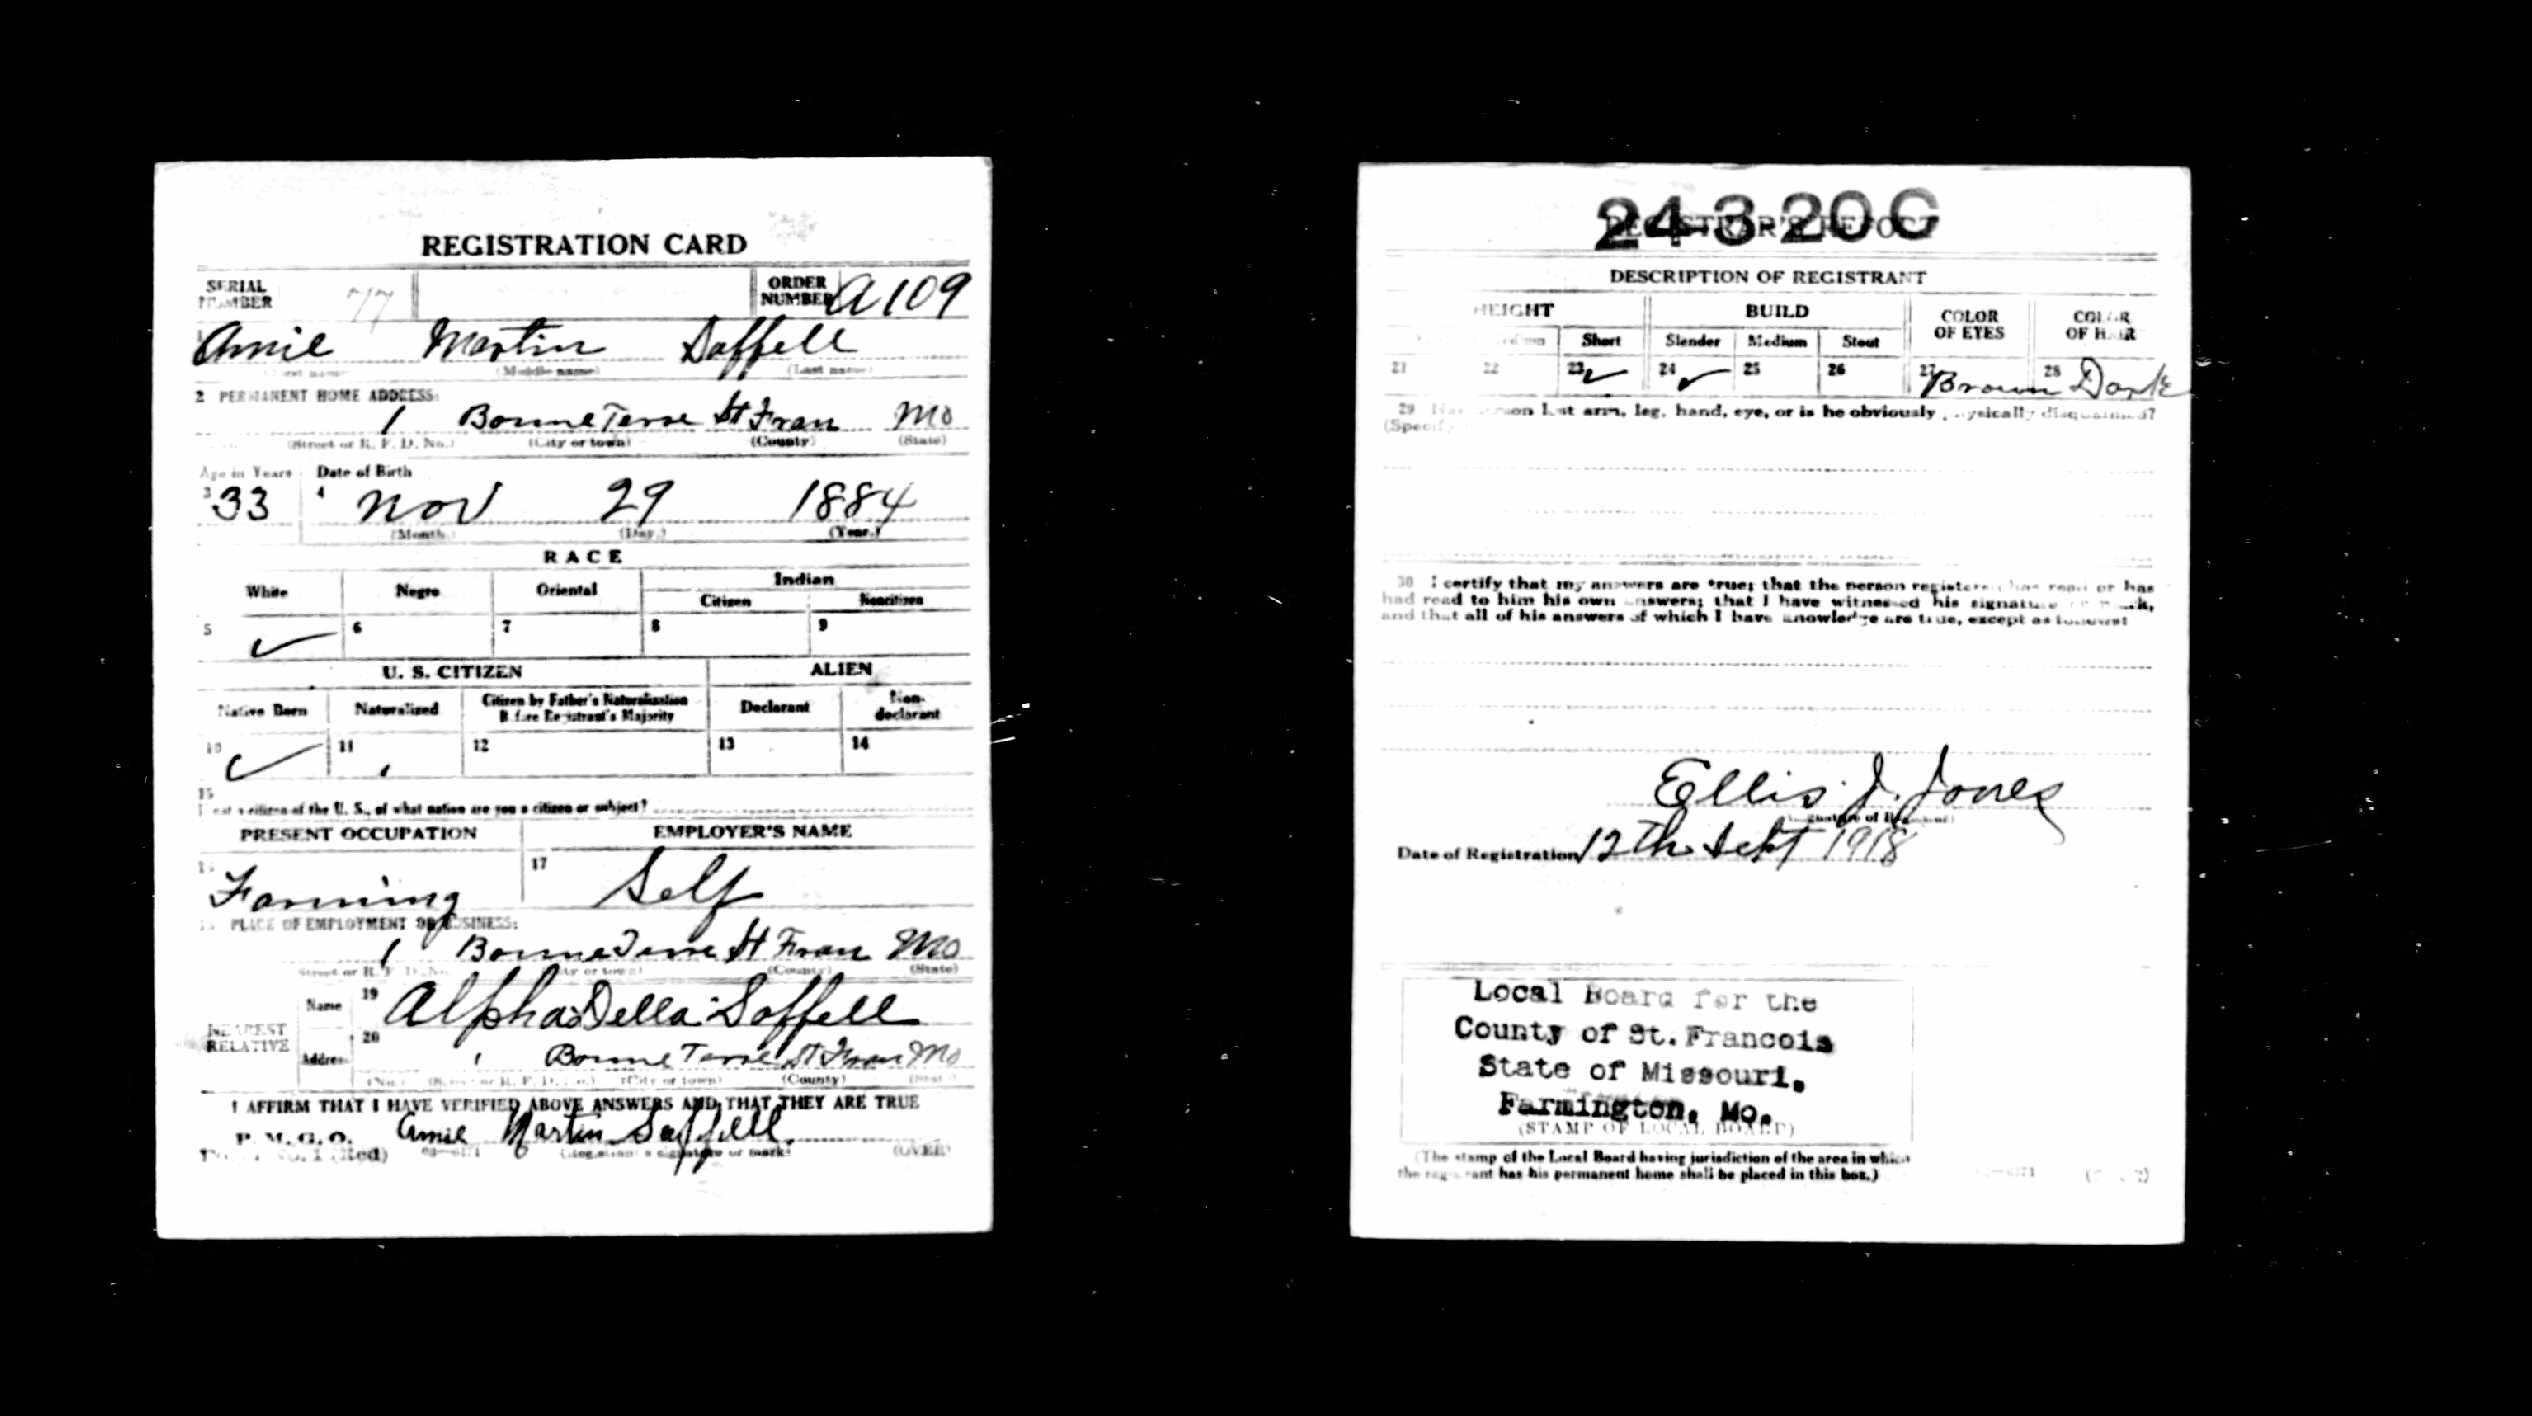 REGISTRATION CARD
SERIAL NUMBER 77 ORDER NUMBER A109
Amie Martin Saffell
(Middle name) (Last name)
2 PERMANENT HOME ADDRESS:
1 Bonne Terre St Fran Mo
(Street or R. F. D. No.) (City or town) (County) (State)
Age in Years Date of Birth
3 33 4 Nov 29 1884
(Month.) (Day.) (Year.)
RACE
White Negro Oriental Indian
Citizen Noncitizen
5 ✓ 6 7 8 9
U. S. CITIZEN ALIEN
Native Born Naturalized Citizen by Father's Naturalization Before Registrant's Majority Declarant Non-declarant
10 ✓ 11 12 13 14
15
not a citizen of the U. S., of what nation are you a citizen or subject?
PRESENT OCCUPATION EMPLOYER'S NAME
Farming 17 Self
PLACE OF EMPLOYMENT OR BUSINESS:
1 Bonne Terre St Fran Mo
Street or R. F. D. No. (City or town) (County) (State)
NEAREST RELATIVE
Name 19 Alpha Della Saffell
Address 20 1 Bonne Terre St Fran Mo
(No.) (City or town) (County) (State)
I AFFIRM THAT I HAVE VERIFIED ABOVE ANSWERS AND THAT THEY ARE TRUE
P. M. G. O. Amie Martin Saffell
(Red) (Registrant's signature or mark) (OVER)
24-3-20 C
REGISTRAR'S REPORT
DESCRIPTION OF REGISTRANT
HEIGHT BUILD COLOR OF EYES COLOR OF HAIR
Short Slender Medium Stout
21 22 23 ✓ 24 ✓ 25 26 27 Brown 28 Dark
29 Has person lost arm, leg, hand, eye, or is he obviously physically disqualified?
(Specify
30 I certify that my answers are true; that the person registered has read or has
had read to him his own answers; that I have witnessed his signature or mark,
and that all of his answers of which I have knowledge are true, except as follows:
Ellis J. Jones
(Signature of Registrar)
Date of Registration 12th Sept 1918
Local Board for the
County of St. Francois
State of Missouri.
Farmington, Mo.
(STAMP OF LOCAL BOARD)
(The stamp of the Local Board having jurisdiction of the area in which
the registrant has his permanent home shall be placed in this box.)